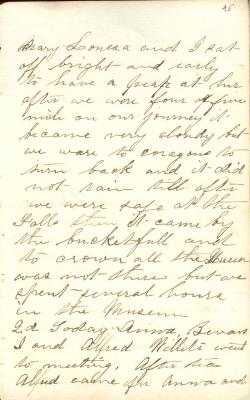 45
Mary Louesa and I sat
off bright and early
to have a peap at her
after we were four or five
mile on our journey it
became very cloudy but
we ware to coragous to
turn back and it did
not rain till after
we were safe at the
Falls then it came by
the bucketfull and
to crown all the Queen
was not there but we
spent several hours
in the Museum
2d Today Anna Bevans
I and Alfred Willets went
to meeting. After tea
Alfred came for Anna and